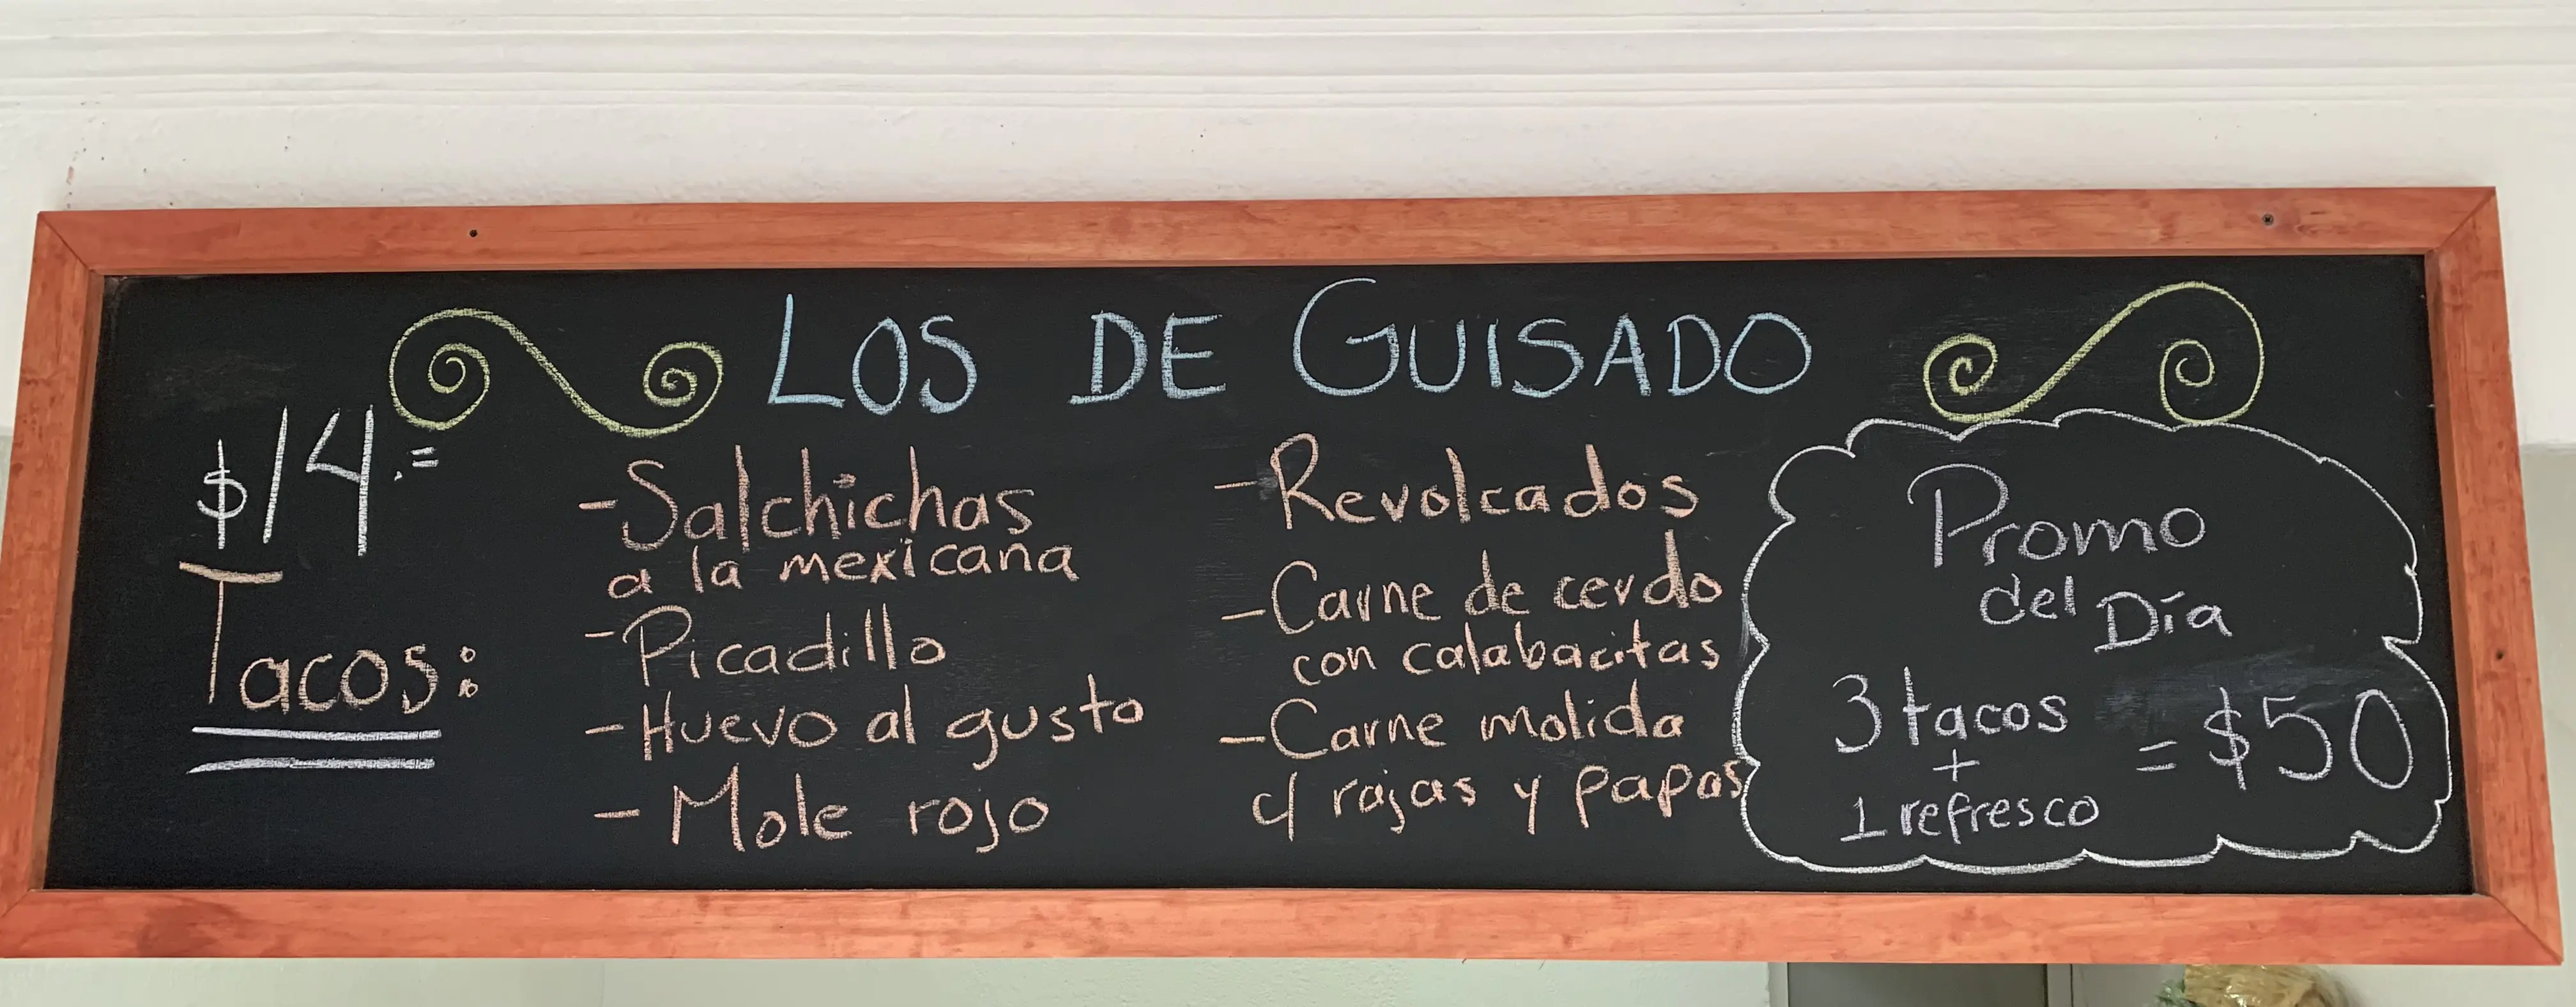 LOS DE GUISADO
$14.=
Tacos:
-Salchichas
a la mexicana
-Picadillo
-Huevo al gusto
-Mole rojo
-Revolcados
-Carne de cerdo
con calabacitas
-Carne molida
c/ rajas y papas
Promo
del Día
3 tacos
+
1 refresco
= $50